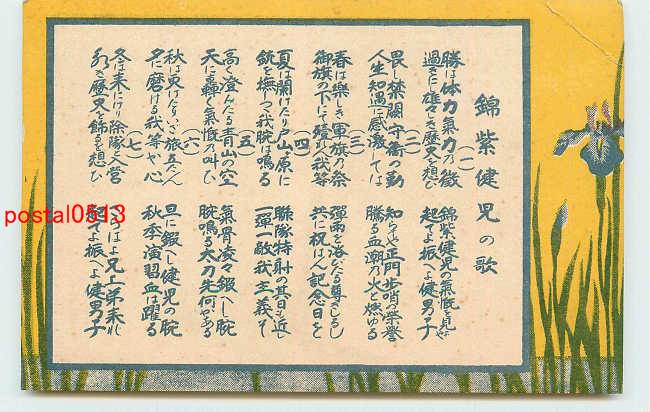 錦紫健児の歌
(一)
勝は体力氣力乃徴
過ぎにし雄々しき歴史を想ひ
錦紫健児の氣慨を見よや
起てよ振へよ健男子
(二)
畏し禁闕守衛の勤
人生知遇に感激しては
知らずや正門歩哨の榮譽
騰る血潮乃火と燃ゆる
(三)
春は樂しき軍旗乃祭
御旗の下にて殪れし我等
彈雨を浴びたる尊きしるし
共に祝はん記念日を
(四)
夏は開けたり戸山ヶ原に
銃を撫しつゝ我腕は鳴る
聯隊特射の其日も近し
一彈一敵我主義ぞ
(五)
高く澄んだる青山の空
天に轟く氣慨乃叫び
氣骨凌々鍛へし腕
腕鳴る太刀先何かある
(六)
秋は更けたりいざ旅立たん
名に磨ける我等が心
旦に鍛へし健児の腕
秋季演習血は躍る
(七)
冬は来にけり除隊入營
永き歴史を飾るを想ひ
さらばよ兄よ弟来れ
起てよ振へよ健男子
postal0513